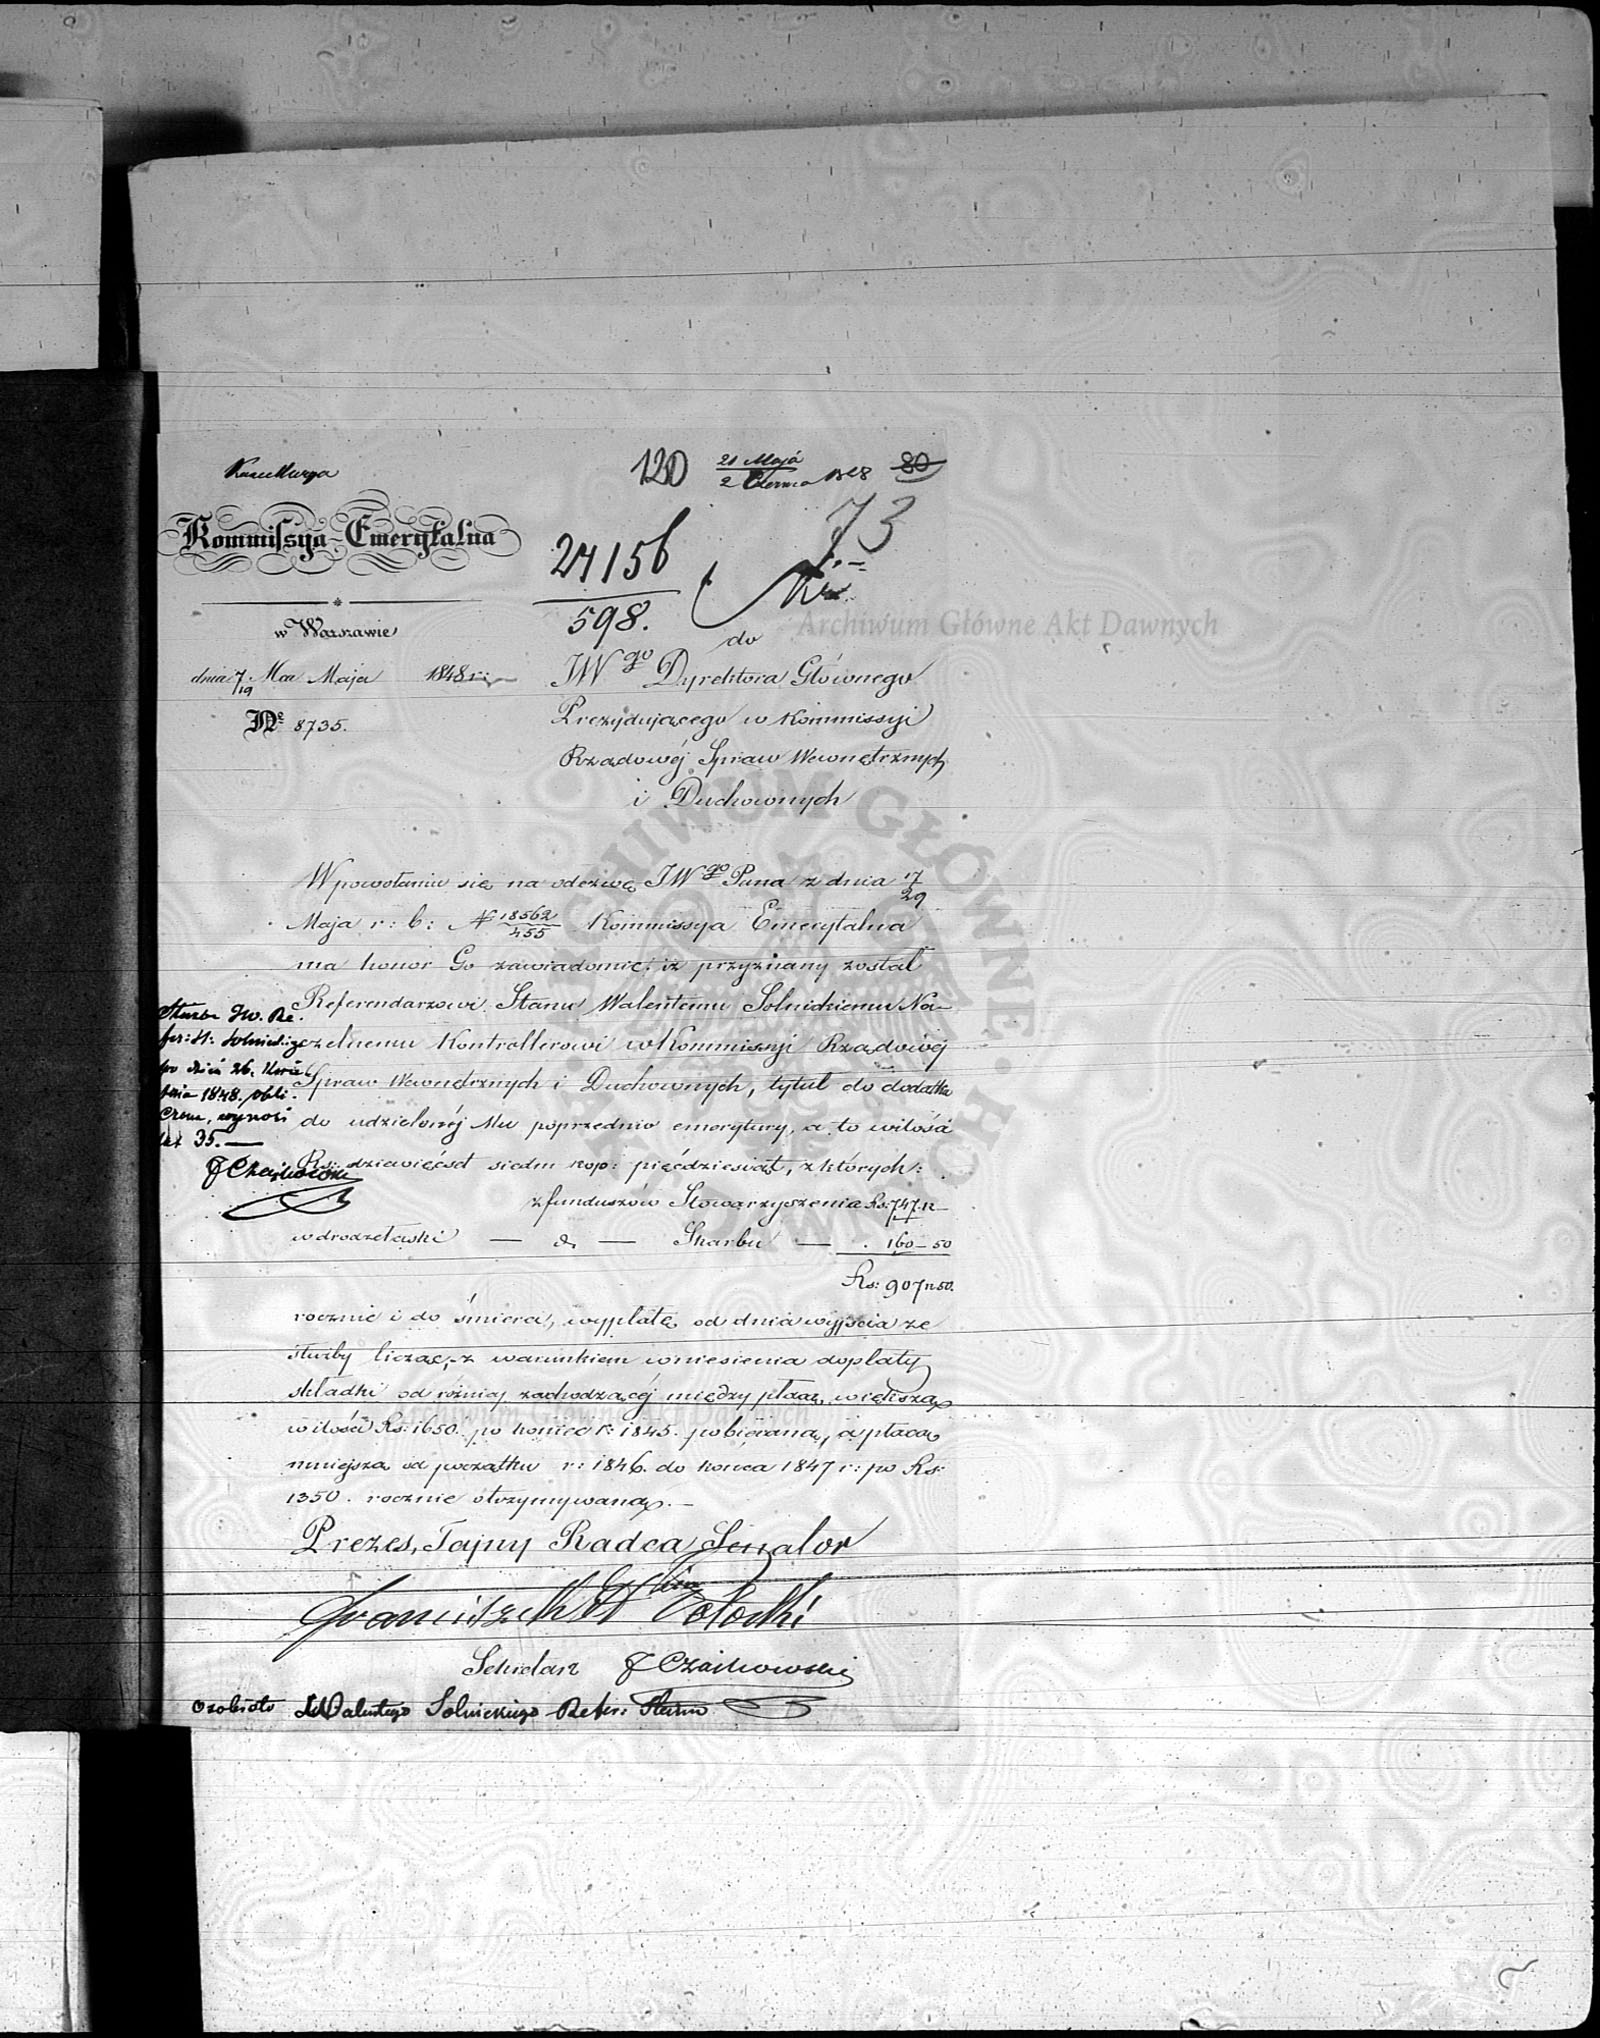 Kancellarya
120 21 Maja / 2 Czerwca 1848 80
73
Kommissya Emerytalna
24156
598.
w Warszawie
dnia 7/19 Mca Maja 1848 r:
Nº 8735.
do
JWgo Dyrektora Głównego
Prezydującego w Kommissyi
Rządowéj Spraw Wewnętrznych
i Duchownych
Archiwum Główne Akt Dawnych
W powołaniu się na odezwę JWgo Pana z dnia 17/29
Maja r: b: № 18562/455 Kommissya Emerytalna
ma honor Go zawiadomić, iż przyznany został
Referendarzowi Stanu Walentemu Solnickiemu Na-
czelnemu Kontrollerowi w Kommissyi Rządowéj
Spraw Wewnętrznych i Duchownych, tytuł do dodatku
do udzielonéj Mu poprzednio emerytury, a to w ilości
Rs: dziewięćset siedm kop: pięćdziesiąt, z których:
z funduszów Stowarzyszenia Rs: 747. k –
w drodze łaski — d. — Skarbu — . 160 – 50
Rs: 907 k 50.
rocznie i do śmierci, wypłatę od dnia wyjścia ze
służby licząc, z warunkiem wniesienia dopłaty
składki od różnicy zachodzącéj między płacą większą
w ilości Rs: 1650. po koniec r: 1845. pobieraną, a płacą
mniejszą od początku r: 1846. do końca 1847 r: po Rs:
1350. rocznie otrzymywaną. –
Służba JW. Re
fer: St: Solnickiego
po dzień 26. Kwie
tnia 1848. obli
czona, wynosi
lat 35. —
J Czaikowski
Archiwum Główne Akt Dawnych
Prezes, Tajny Radca Senator
Franciszek Potocki
Sekretarz J Czaikowski
Osobiste Walentego Solnickiego Refer: Stanu
ARCHIWUM GŁÓWNE